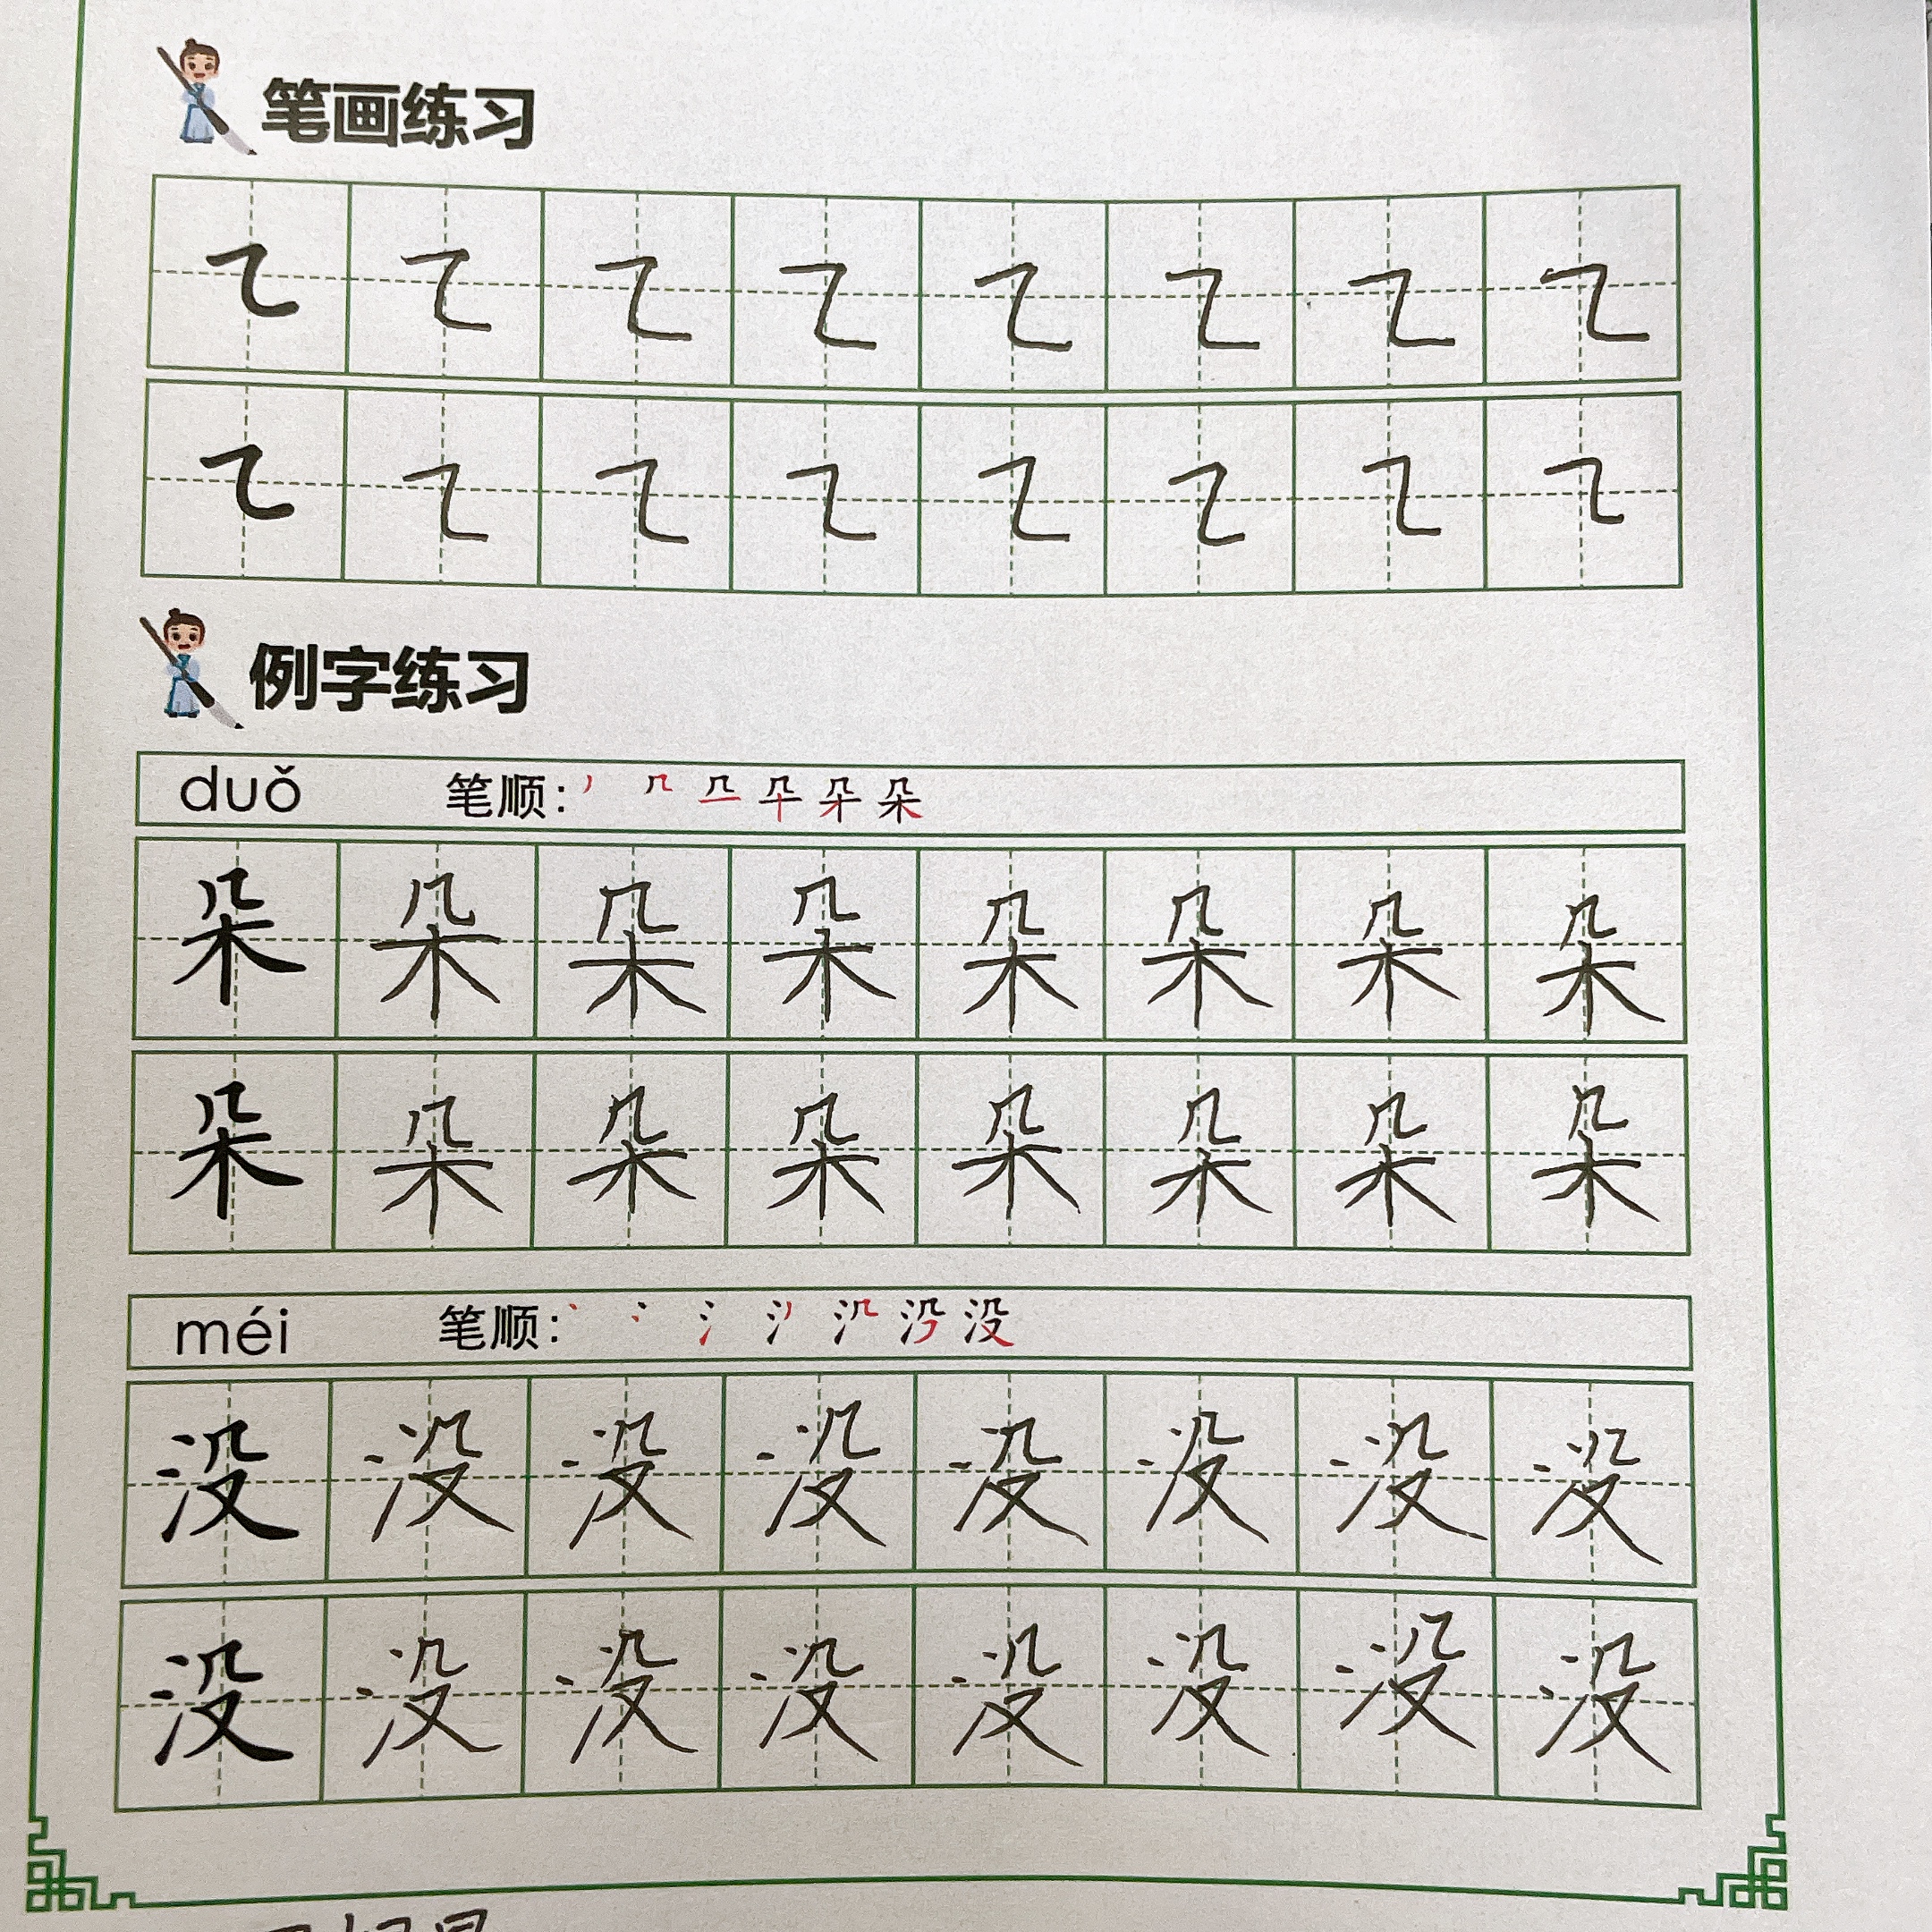 笔画练习
㇍ ㇍ ㇍ ㇍ ㇍ ㇍ ㇍ ㇍
㇍ ㇍ ㇍ ㇍ ㇍ ㇍ ㇍ ㇍
例字练习
duǒ 笔顺: 朵
朵 朵 朵 朵 朵 朵 朵 朵
朵 朵 朵 朵 朵 朵 朵 朵
méi 笔顺: 没
没 没 没 没 没 没 没 没
没 没 没 没 没 没 没 没